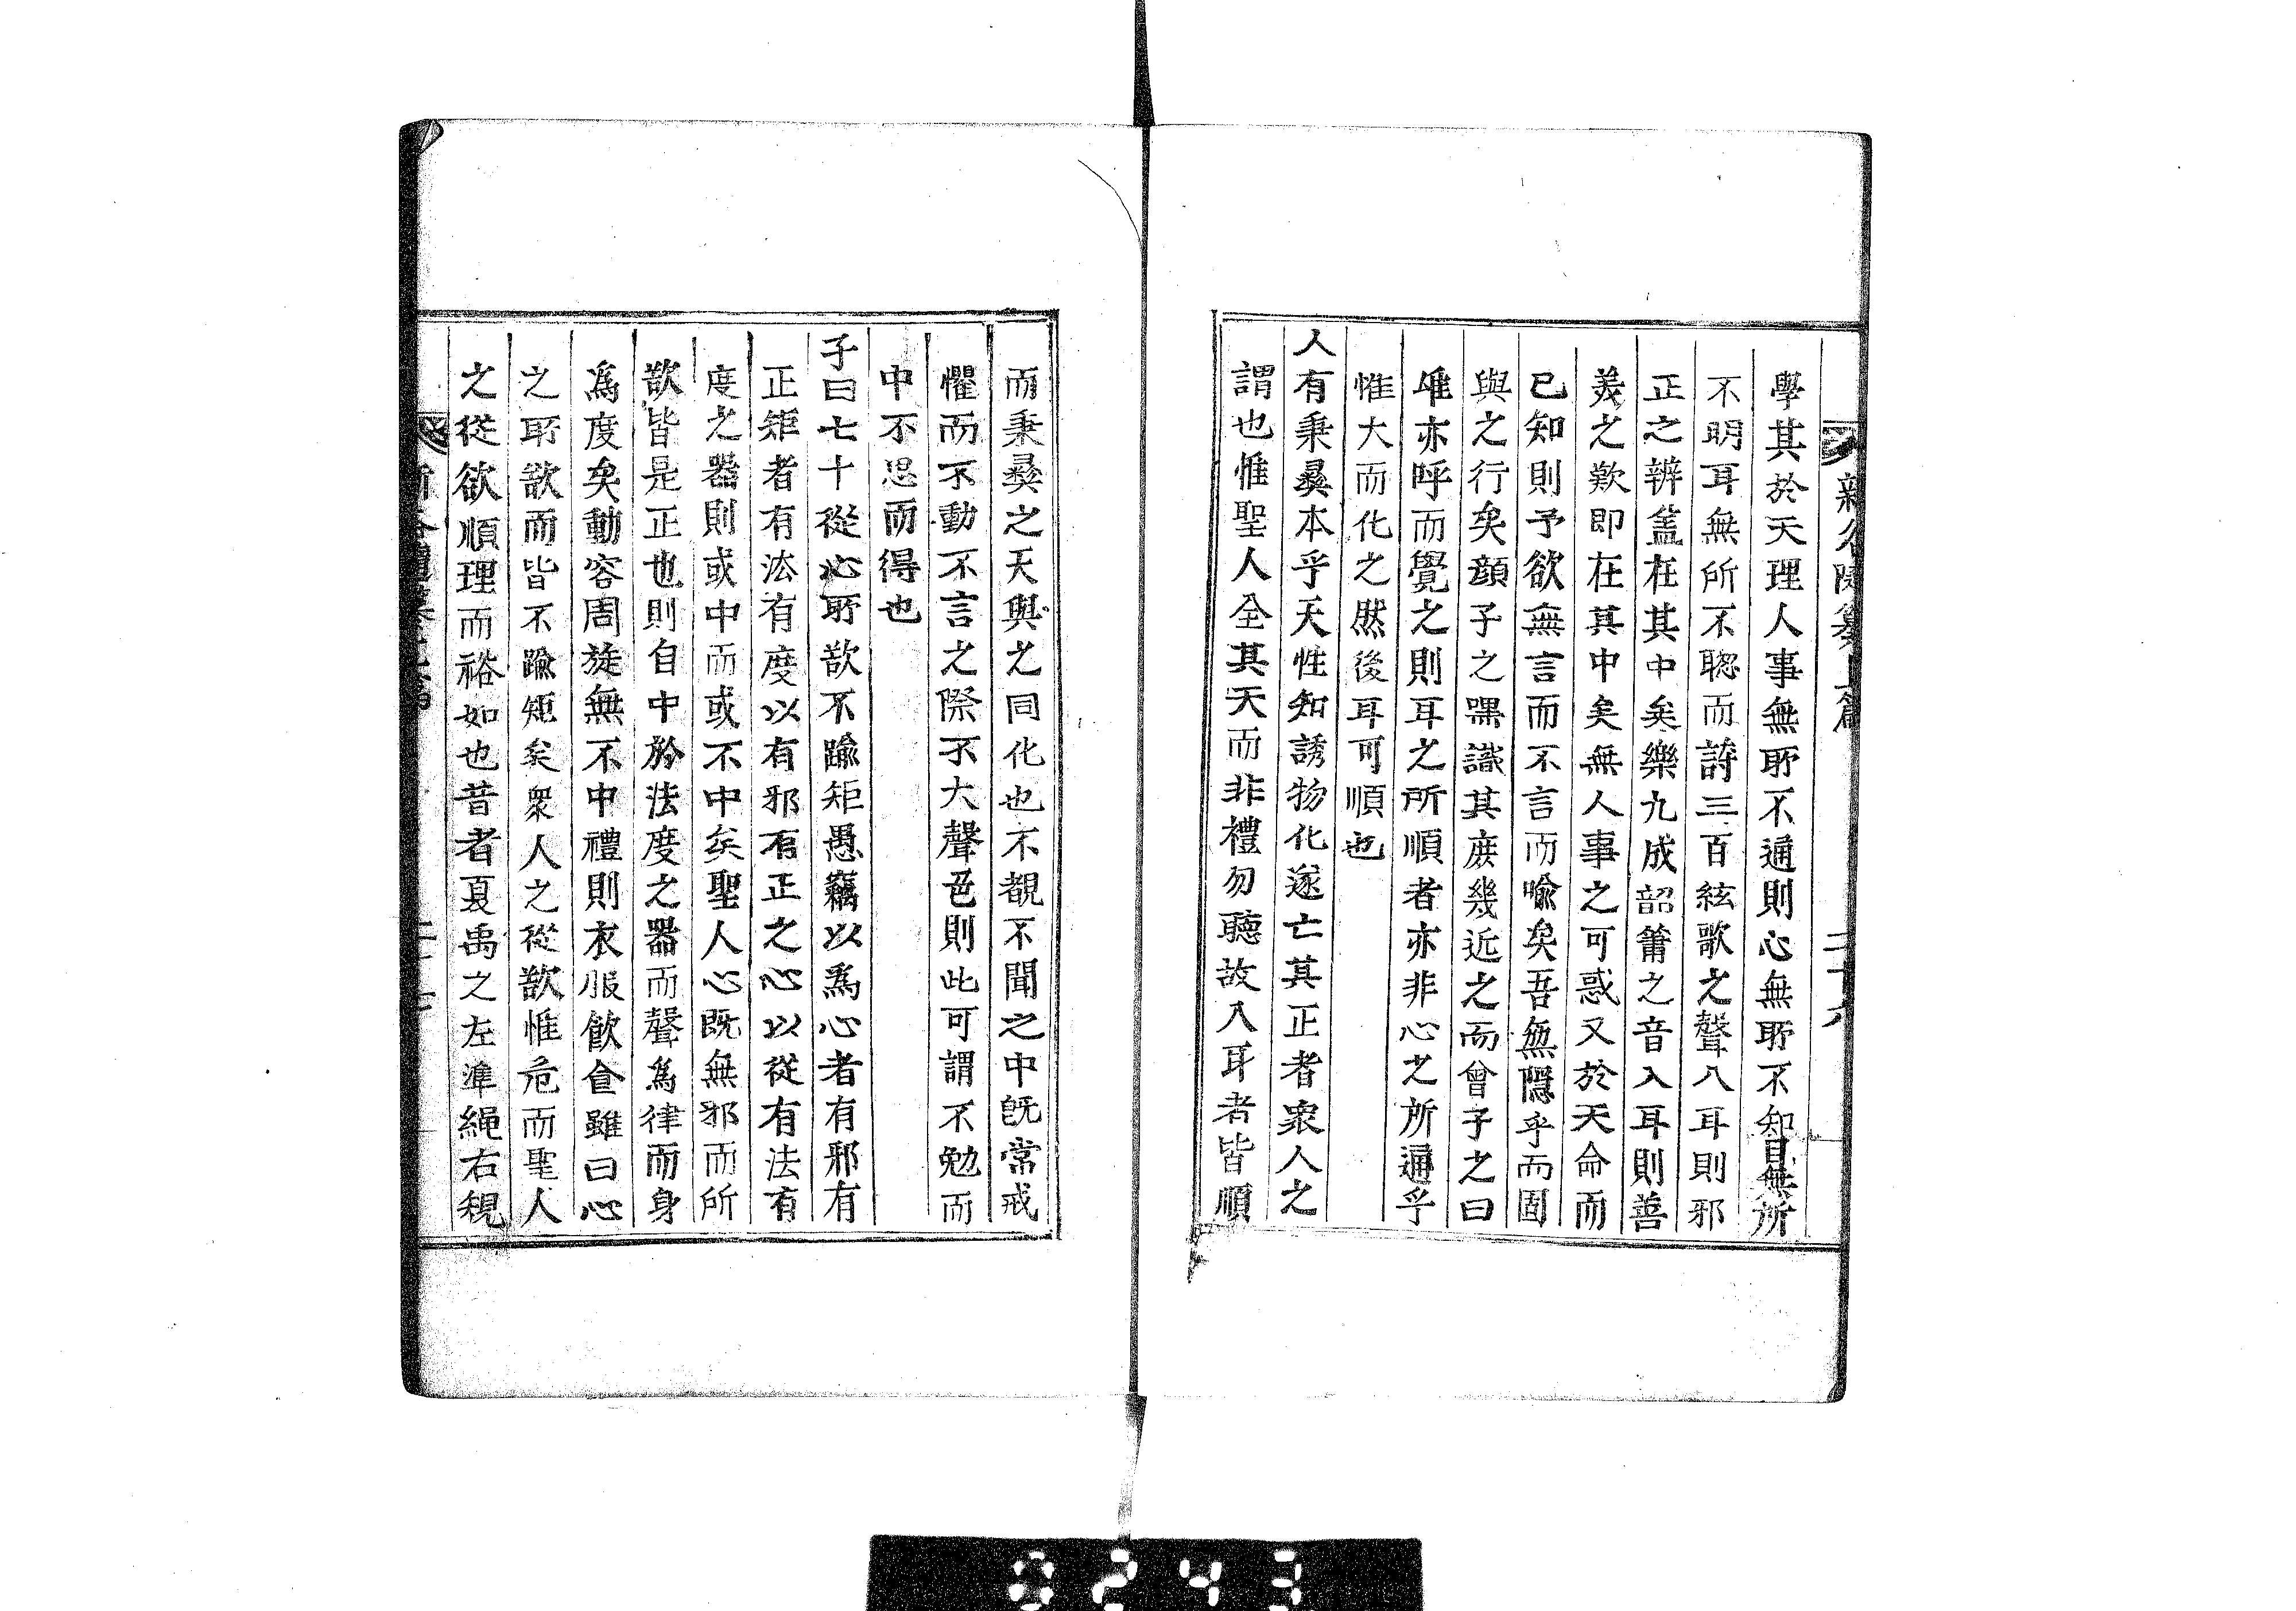 學其於天理人事無所不通則心無所不知目無所
不明耳無所不聦而詩三百絃歌之聲入耳則邪
正之辨盖在其中矣樂九成韶簫之音入耳則善
羙之歎即在其中矣無人事之可惑又於天命而
已知則予欲無言而不言而喻矣吾無隱乎而固
與之行矣顔子之嘿識其庶幾近之而曾子之曰
唯亦呼而覺之則耳之所順者亦非心之所通乎
惟大而化之然後耳可順也
人有秉彛本乎天性知誘物化遂亡其正者衆人之
謂也惟聖人全其天而非禮勿聽故入耳者皆順
而秉彛之天與之同化也不覩不聞之中旣常戒
懼而不動不言之際不大聲色則此可謂不勉而
中不思而得也
子曰七十從心所欲不踰矩愚竊以爲心者有邪有
正矩者有法有度以有邪有正之心以從有法有
度之器則或中而或不中矣聖人心旣無邪而所
欲皆是正也則自中於法度之器而聲爲律而身
爲度矣動容周旋無不中禮則衣服飮食雖曰心
之所欲而皆不踰矩矣衆人之從欲惟危而聖人
之從欲順理而裕如也昔者夏禹之左準繩右規